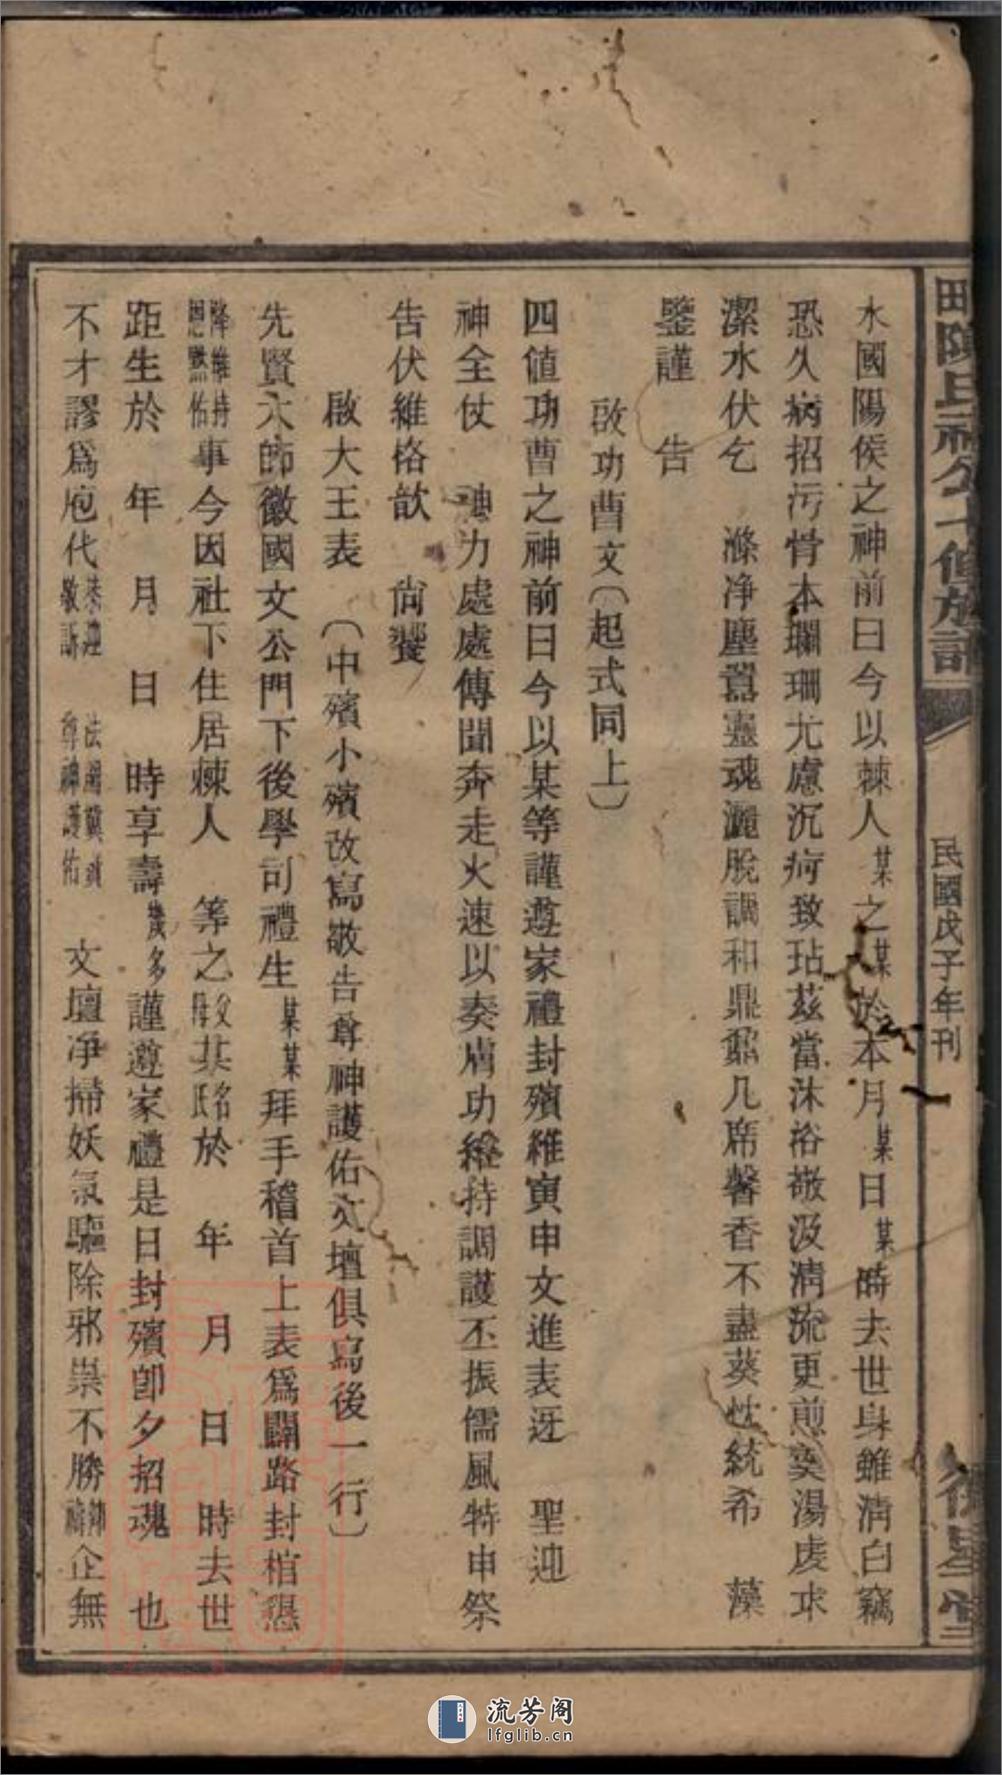 水國陽侯之神前曰今以棘人某之某於本月某日某時去世身雖清白竊
恐久病招污骨本斕珊尤慮沉疴致玷茲當沐浴敬汲清流更煎奠湯虔求
潔水伏乞　滌净塵囂靈魂灑脫調和鼎鼐几席馨香不盡葵忱統希　藻
鑒謹　告
啟功曹文（起式同上）
四值功曹之神前曰今以某等謹遵家禮封殯維寅申文進表迓　聖迎
神全仗　神力處處傳聞奔走火速以奏膚功維持調護丕振儒風特申祭
告伏維格歆　尚饗
啟大王表　（中殯小殯改寫敬告尊神護佑文壇俱寫後一行）
先賢大師徽國文公門下後學司禮生某某拜手稽首上表為闢路封棺懇
降維持
恩默佑
事今因社下住居棘人　等之
父某名
母某氏
於　年　月　日　時去世
距生於　年　月　日　時享壽幾多謹遵家禮是日封殯卽夕招魂　也
不才謬為庖代
恭迎
敬訴
法
尊神護佑
文壇净掃妖氛驅除邪祟不勝
企無
陳氏
修族譜
民國戊子年刊
星堂
流芳阁
lfglib.cn